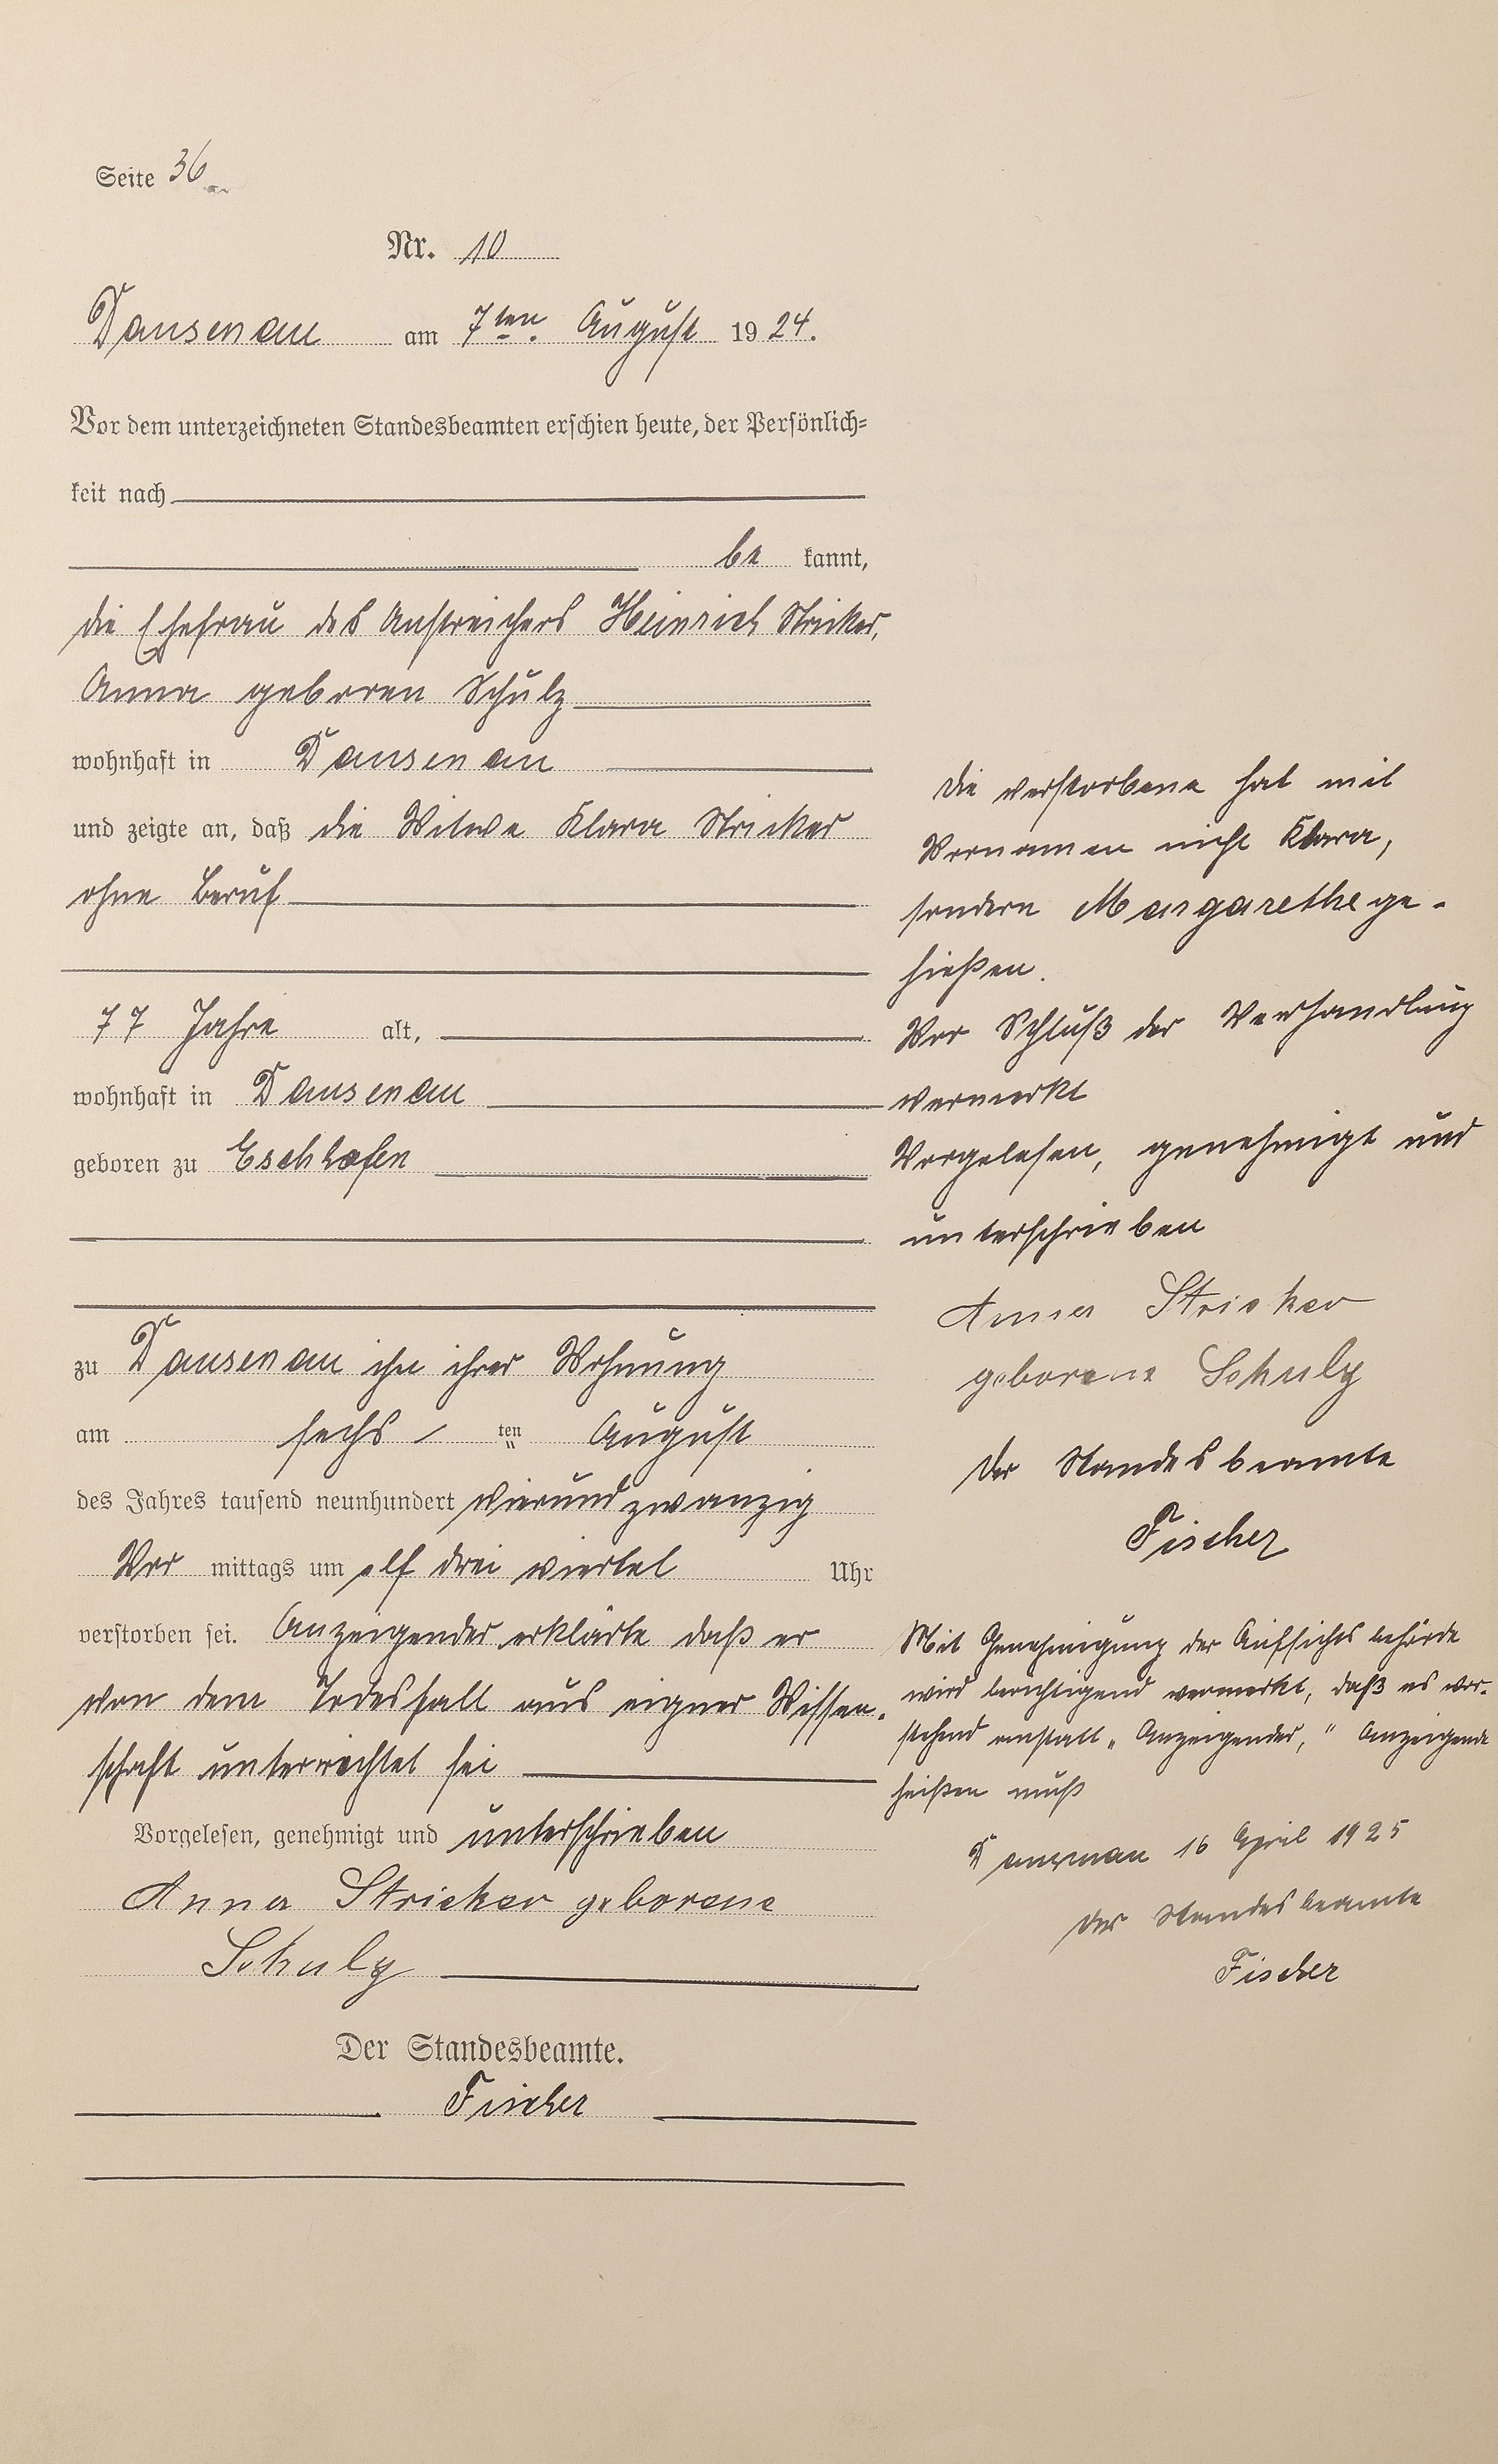 Seite 36
Nr. 10
Dausenau am 7ten August 1924.
Vor dem unterzeichneten Standesbeamten erschien heute, der Persönlich=
keit nach
be kannt,
die Ehefrau des Anstreichers Heinrich Stricker,
Anna geboren Schulz
wohnhaft in Dausenau
und zeigte an, daß die Witwe Klara Stricker
ohne Beruf
77 Jahre alt,
wohnhaft in Dausenau
geboren zu Eschhofen
zu Dausenau ihn ihrer Wohnung
am sechs ten August
des Jahres tausend neunhundert vierundzwanzig
Vor mittags um elf drei viertel Uhr
verstorben sei. Anzeigender erklärte daß er
von dem Todesfall aus eigner Wissen-
schaft unterrichtet sei
Vorgelesen, genehmigt und unterschrieben
Anna Stricker geborene
Schulz
Der Standesbeamte.
Fischer
Die verstorbene hat mit
Vornamen nicht Klara,
sondern Margarethe ge-
hießen.
Vor Schluß der Verhandlung
vermerkt
Vorgelesen, genehmigt und
unterschrieben
Anna Stricker
geborene Schulz
Der Standesbeamte
Fischer
Mit Genehmigung der Aufsichtsbehörde
wird berichtigend vermerkt, daß es vor-
stehend anstatt „Anzeigender," Anzeigende
heißen muß
Dausenau 16 April 1925
Der Standesbeamte
Fischer